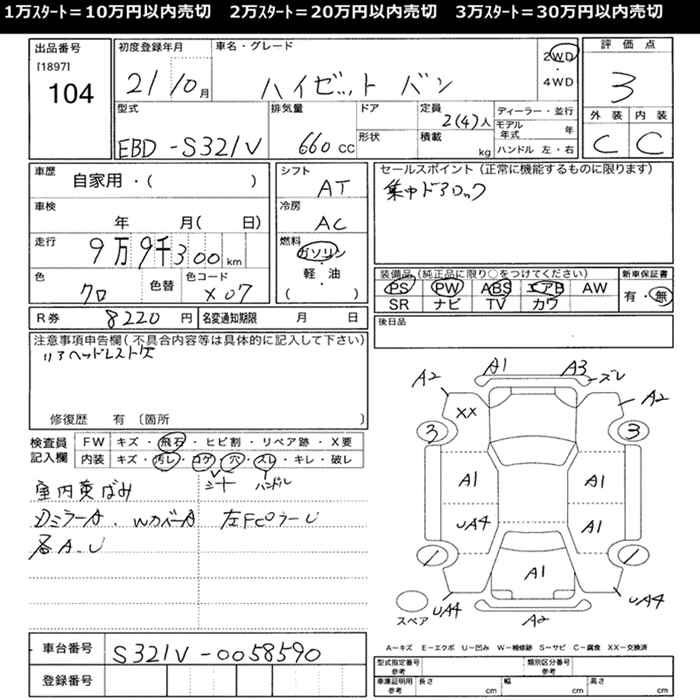 1万スタート＝10万円以内売切　2万スタート＝20万円以内売切　3万スタート＝30万円以内売切
出品番号
[1897]
104
初度登録年月
21/10月
車名・グレード
ハイゼット バン
2WD
・
4WD
評価点
3
外装 内装
C C
型式
EBD-S321V
排気量
660 CC
ドア
形状
定員
2(4)人
積載
kg
ディーラー・並行
モデル年式 年
ハンドル 左・右
車歴
自家用・( )
車検
年 月( 日)
走行
9万9千300km
色
クロ
色替
色コード
X07
シフト
AT
冷房
AC
燃料
ガソリン
・
軽・油
( )
セールスポイント (正常に機能するものに限ります)
集中ドアロック
装備品 (純正品に限り○をつけてください)
PS PW ABS エアB AW
SR ナビ TV カワ
新車保証書
有・無
R券 8220 円
名変通知期限 月 日
後日品
注意事項申告欄(不具合内容等は具体的に記入して下さい)
リアヘッドレスト欠
修復歴 有〔箇所 〕
検査員記入欄
FW キズ・飛石・ヒビ割・リペア跡・X要
内装 キズ・汚レ・コゲ・穴・スレ・キレ・破レ
ハンドル
室内黄ばみ
DミラーA. WカバーA 左FCピラーU
各A.U
A1 A3 ズレ
A2 A2
XX
3 3
A1 A1
UA4 A1
1 1
A1
UA4 UA4
A2
スペア
A－キズ E－エクボ U－凹み W－補修跡 S－サビ C－腐食 XX－交換済
車台番号
S321V-0058590
登録番号
型式指定番号 参考
類別区分番号 参考
車庫証明用 参考
長さ cm
幅 cm
高さ cm